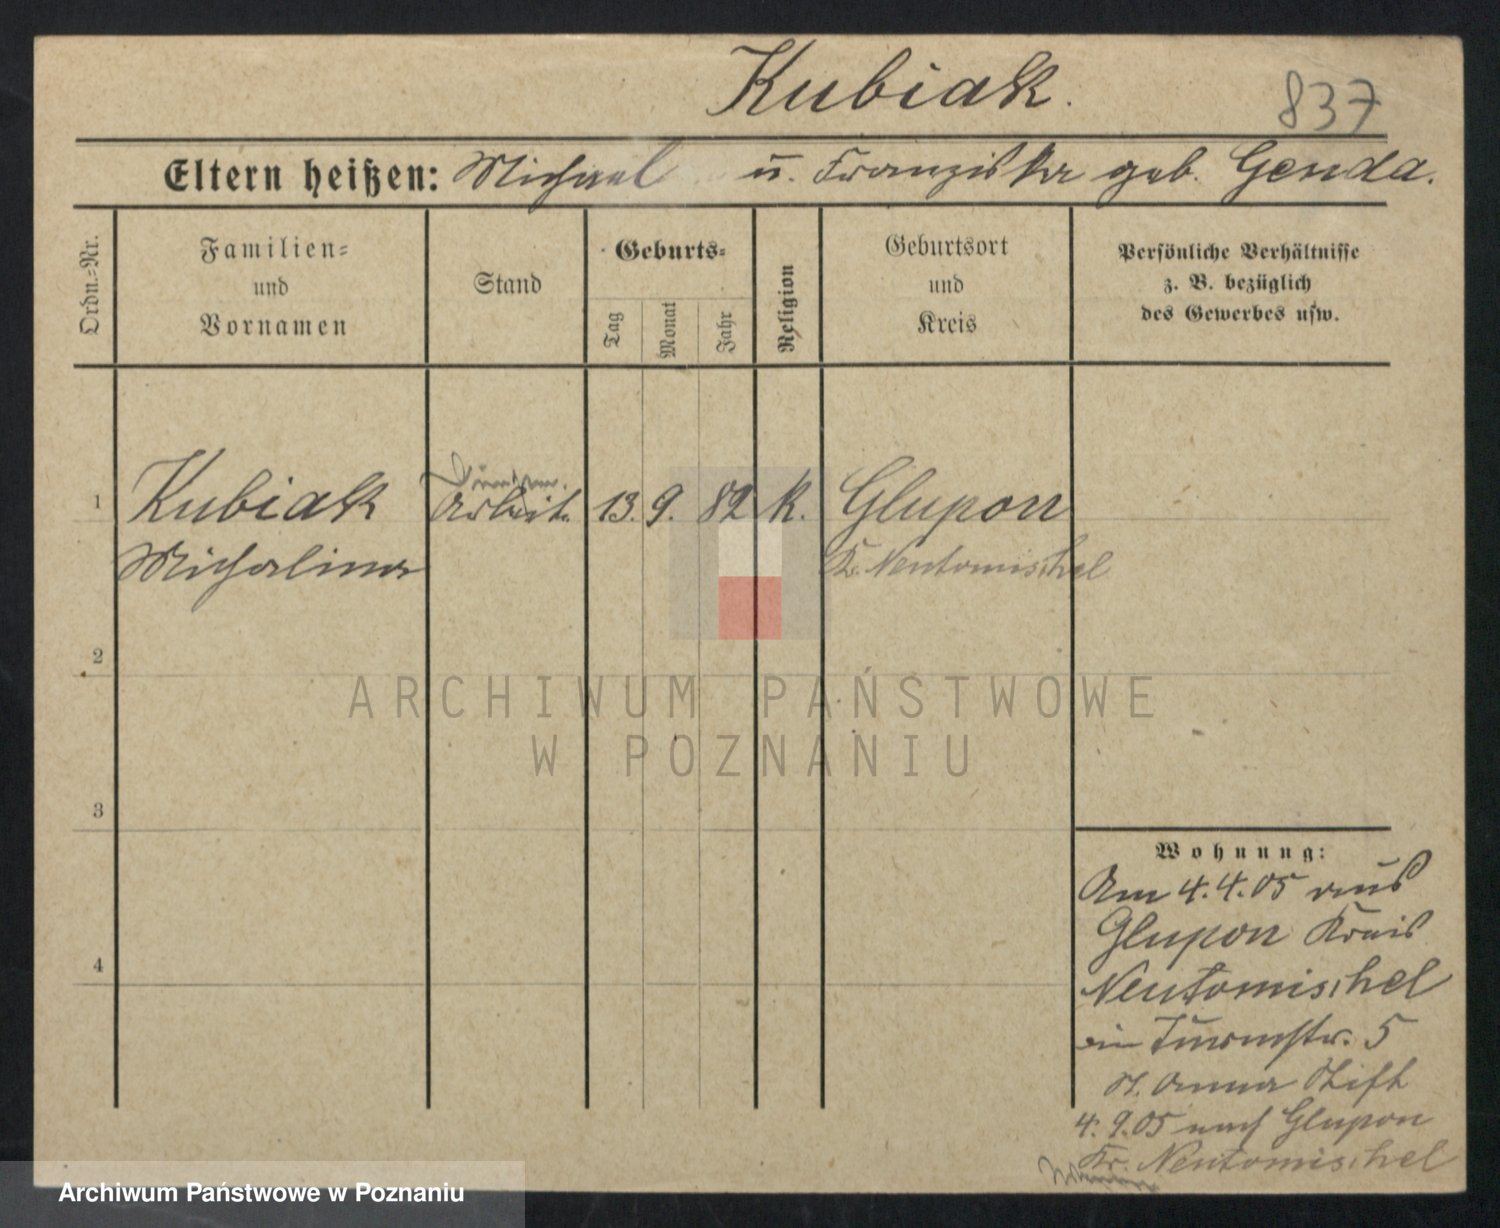 Kubiak.
837
Eltern heißen: Michael u. Franziska geb. Genda.
Ordn.=Nr.
Familien=
und
Vornamen
Stand
Geburts=
Tag
Monat
Jahr
Religion
Geburtsort
und
Kreis
Persönliche Verhältnisse
z. B. bezüglich
des Gewerbes usw.
1 Kubiak Arbeit. 13. 9. 82 k. Glupon
Michalina Kr. Neutomischel
2
3
4
Wohnung:
Am 4.4.05 aus
Glupon Kreis
Neutomischel
in Turmstr. 5
St. Anna Stift
4.9.05 nach Glupon
Kr. Neutomischel
ARCHIWUM PAŃSTWOWE
W POZNANIU
Archiwum Państwowe w Poznaniu